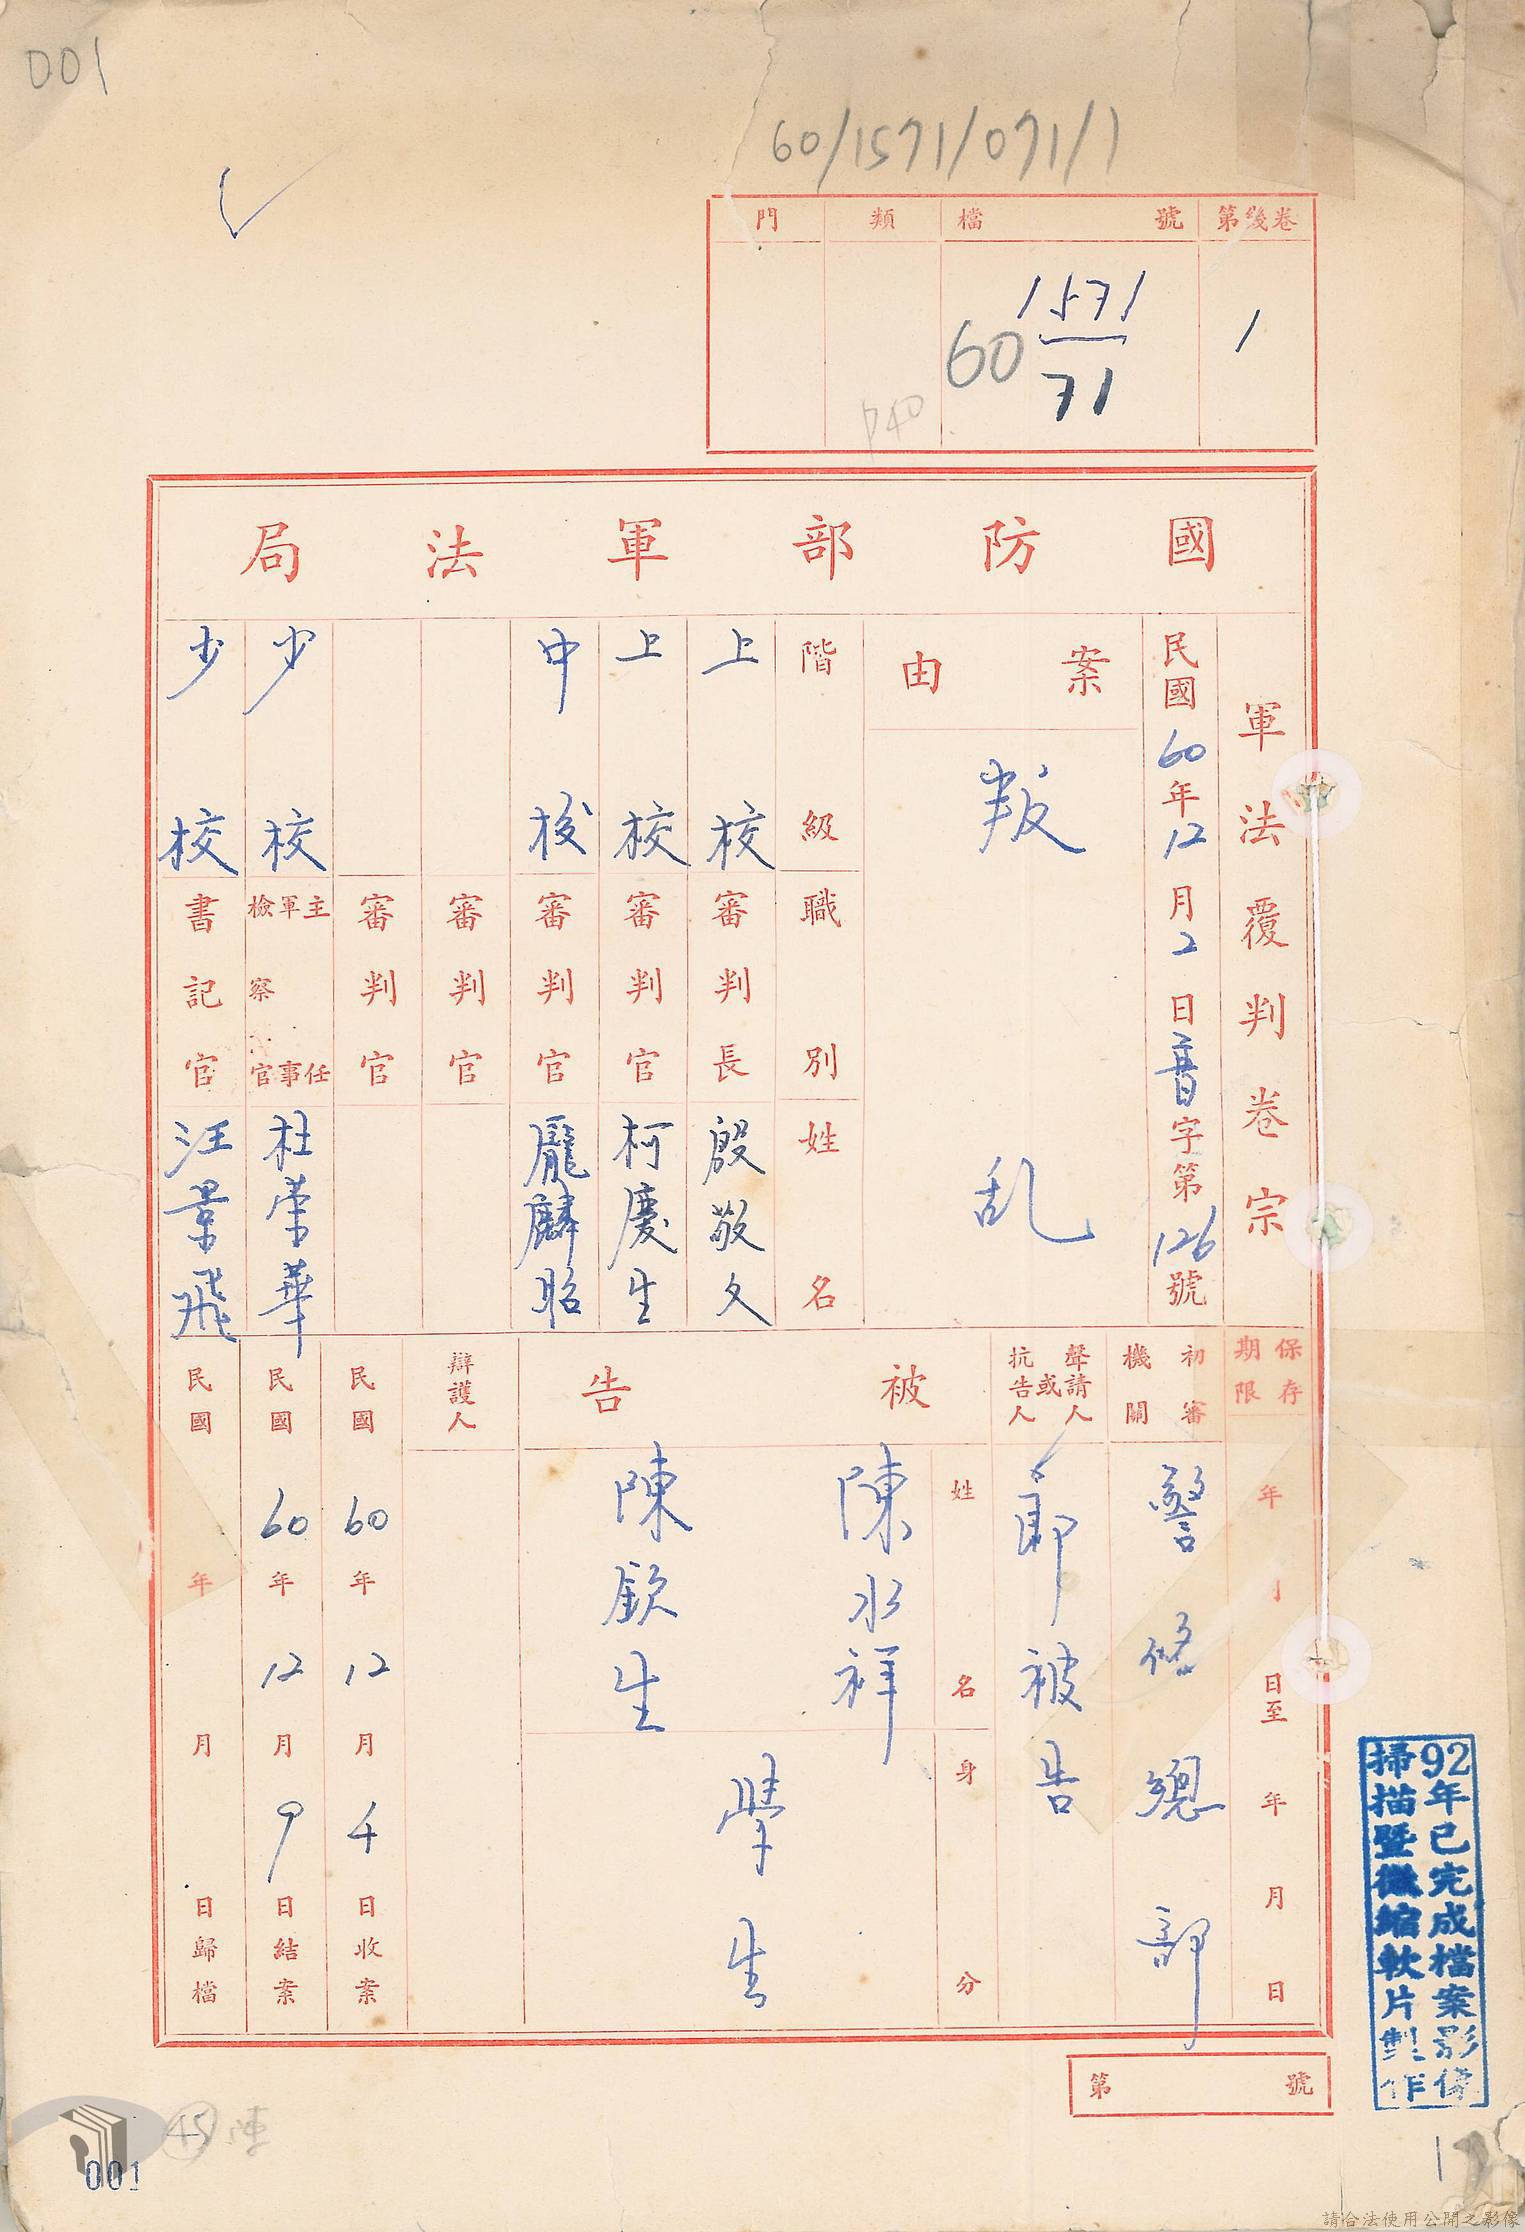 001
60/1571/071/1
第幾卷
1
檔號
60 1571/71
類
門
P40
國防部軍法局
軍法覆判卷宗
民國60年12月2日普字第126號
案由
叛乱
階級 職別 姓名
上校 審判長 殷敬文
上校 審判官 柯慶生
中校 審判官 龐麟昭
審判官
審判官
少校 主任軍事檢察官 杜榮華
少校 書記官 汪景飛
保存期限
年 月 日至 年 月 日
初審機關
警備總部
聲請人或抗告人
即被告
被告
姓名
陳水祥
陳欽生
身分
學生
辯護人
民國60年12月4日收案
民國60年12月9日結案
民國 年 月 日歸檔
第 號
92年已完成檔案影像
掃描暨微縮軟片製作
45 陳
001
1
請合法使用公開之影像